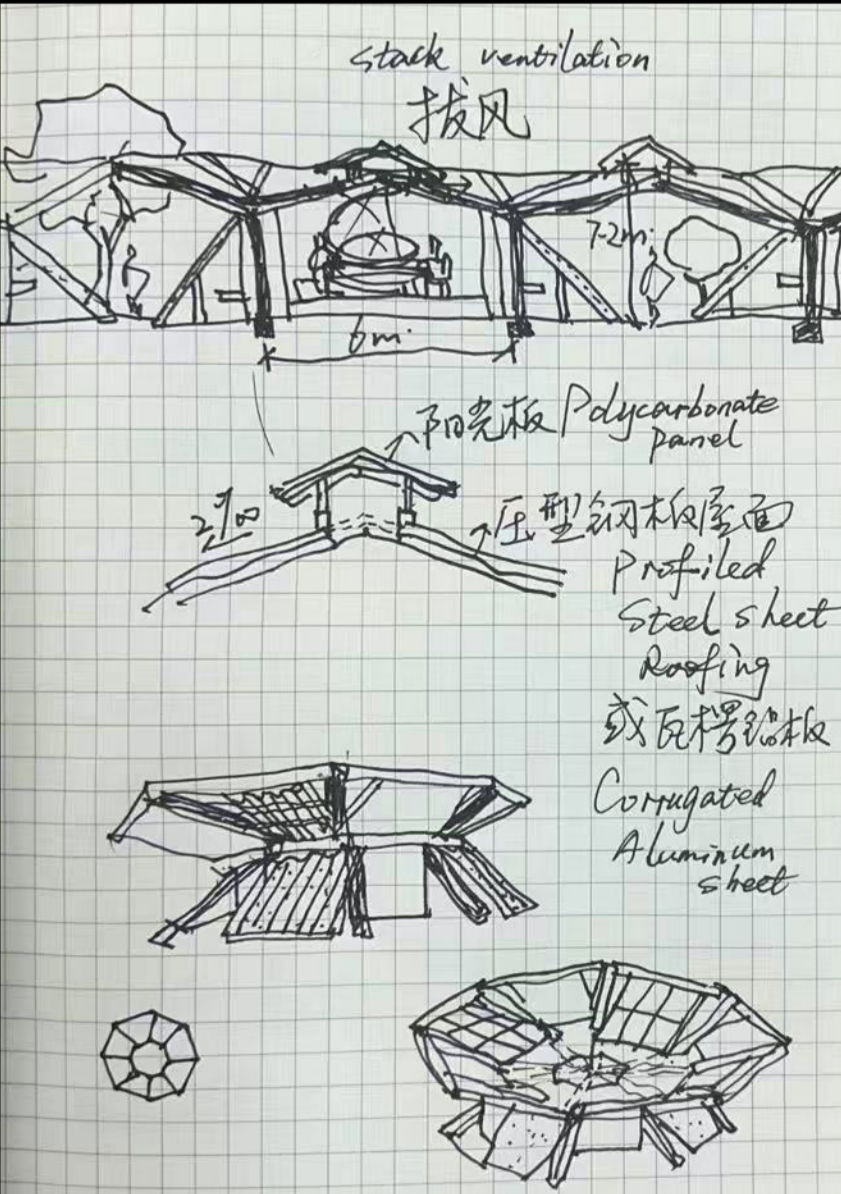 stack ventilation
拔风
7.2m.
6m.
阳光板 Polycarbonate
panel
2%
压型钢板屋面
Profiled
Steel sheet
Roofing
或瓦楞铝板
Corrugated
Aluminum
sheet